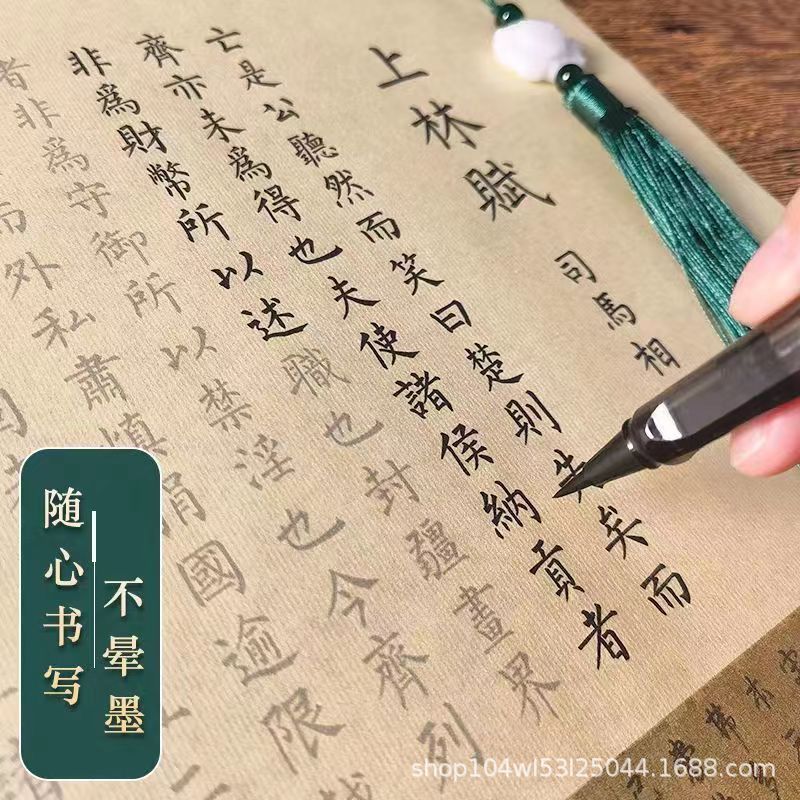 上林賦
司馬相
亡是公聽然而笑曰楚則失矣而
齊亦未爲得也夫使諸侯納貢者
非爲財幣所以述職也封疆畫界
者非爲守御所以禁淫也今齊列
而外私肅慎捐國逾限
随心书写
不晕墨
shop104wl53l25044.1688.com